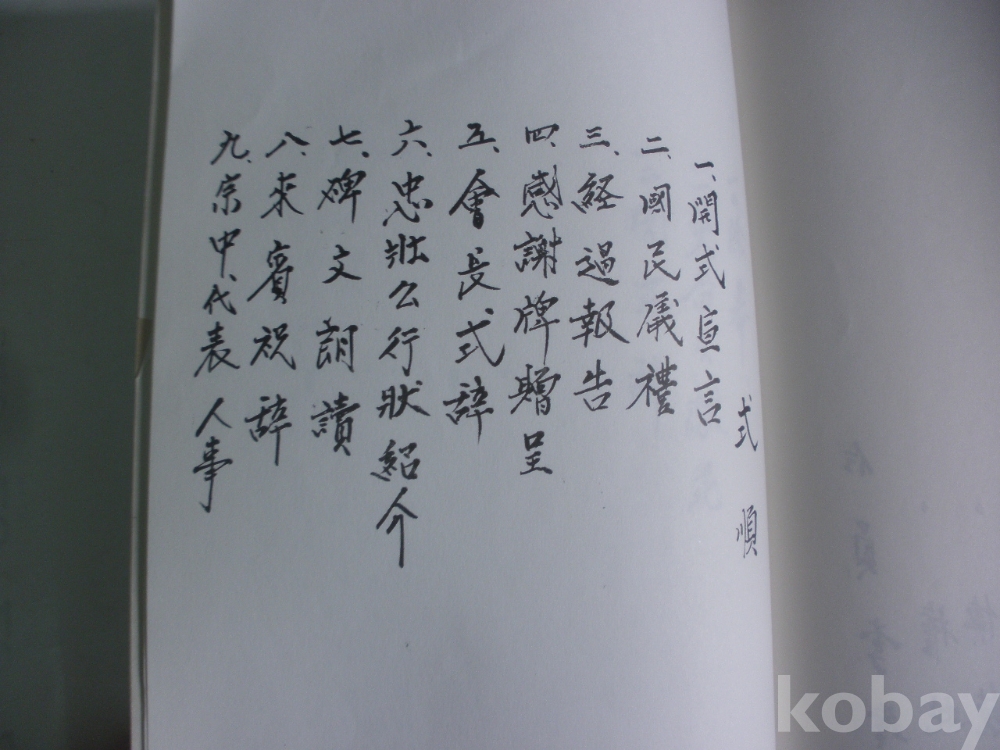 式順
一、開式宣言
二、國民儀禮
三、経過報告
四、感謝牌贈呈
五、會長式辞
六、忠壯公行狀紹介
七、碑文朗讀
八、來賓祝辞
九、宗中代表人事
kobay